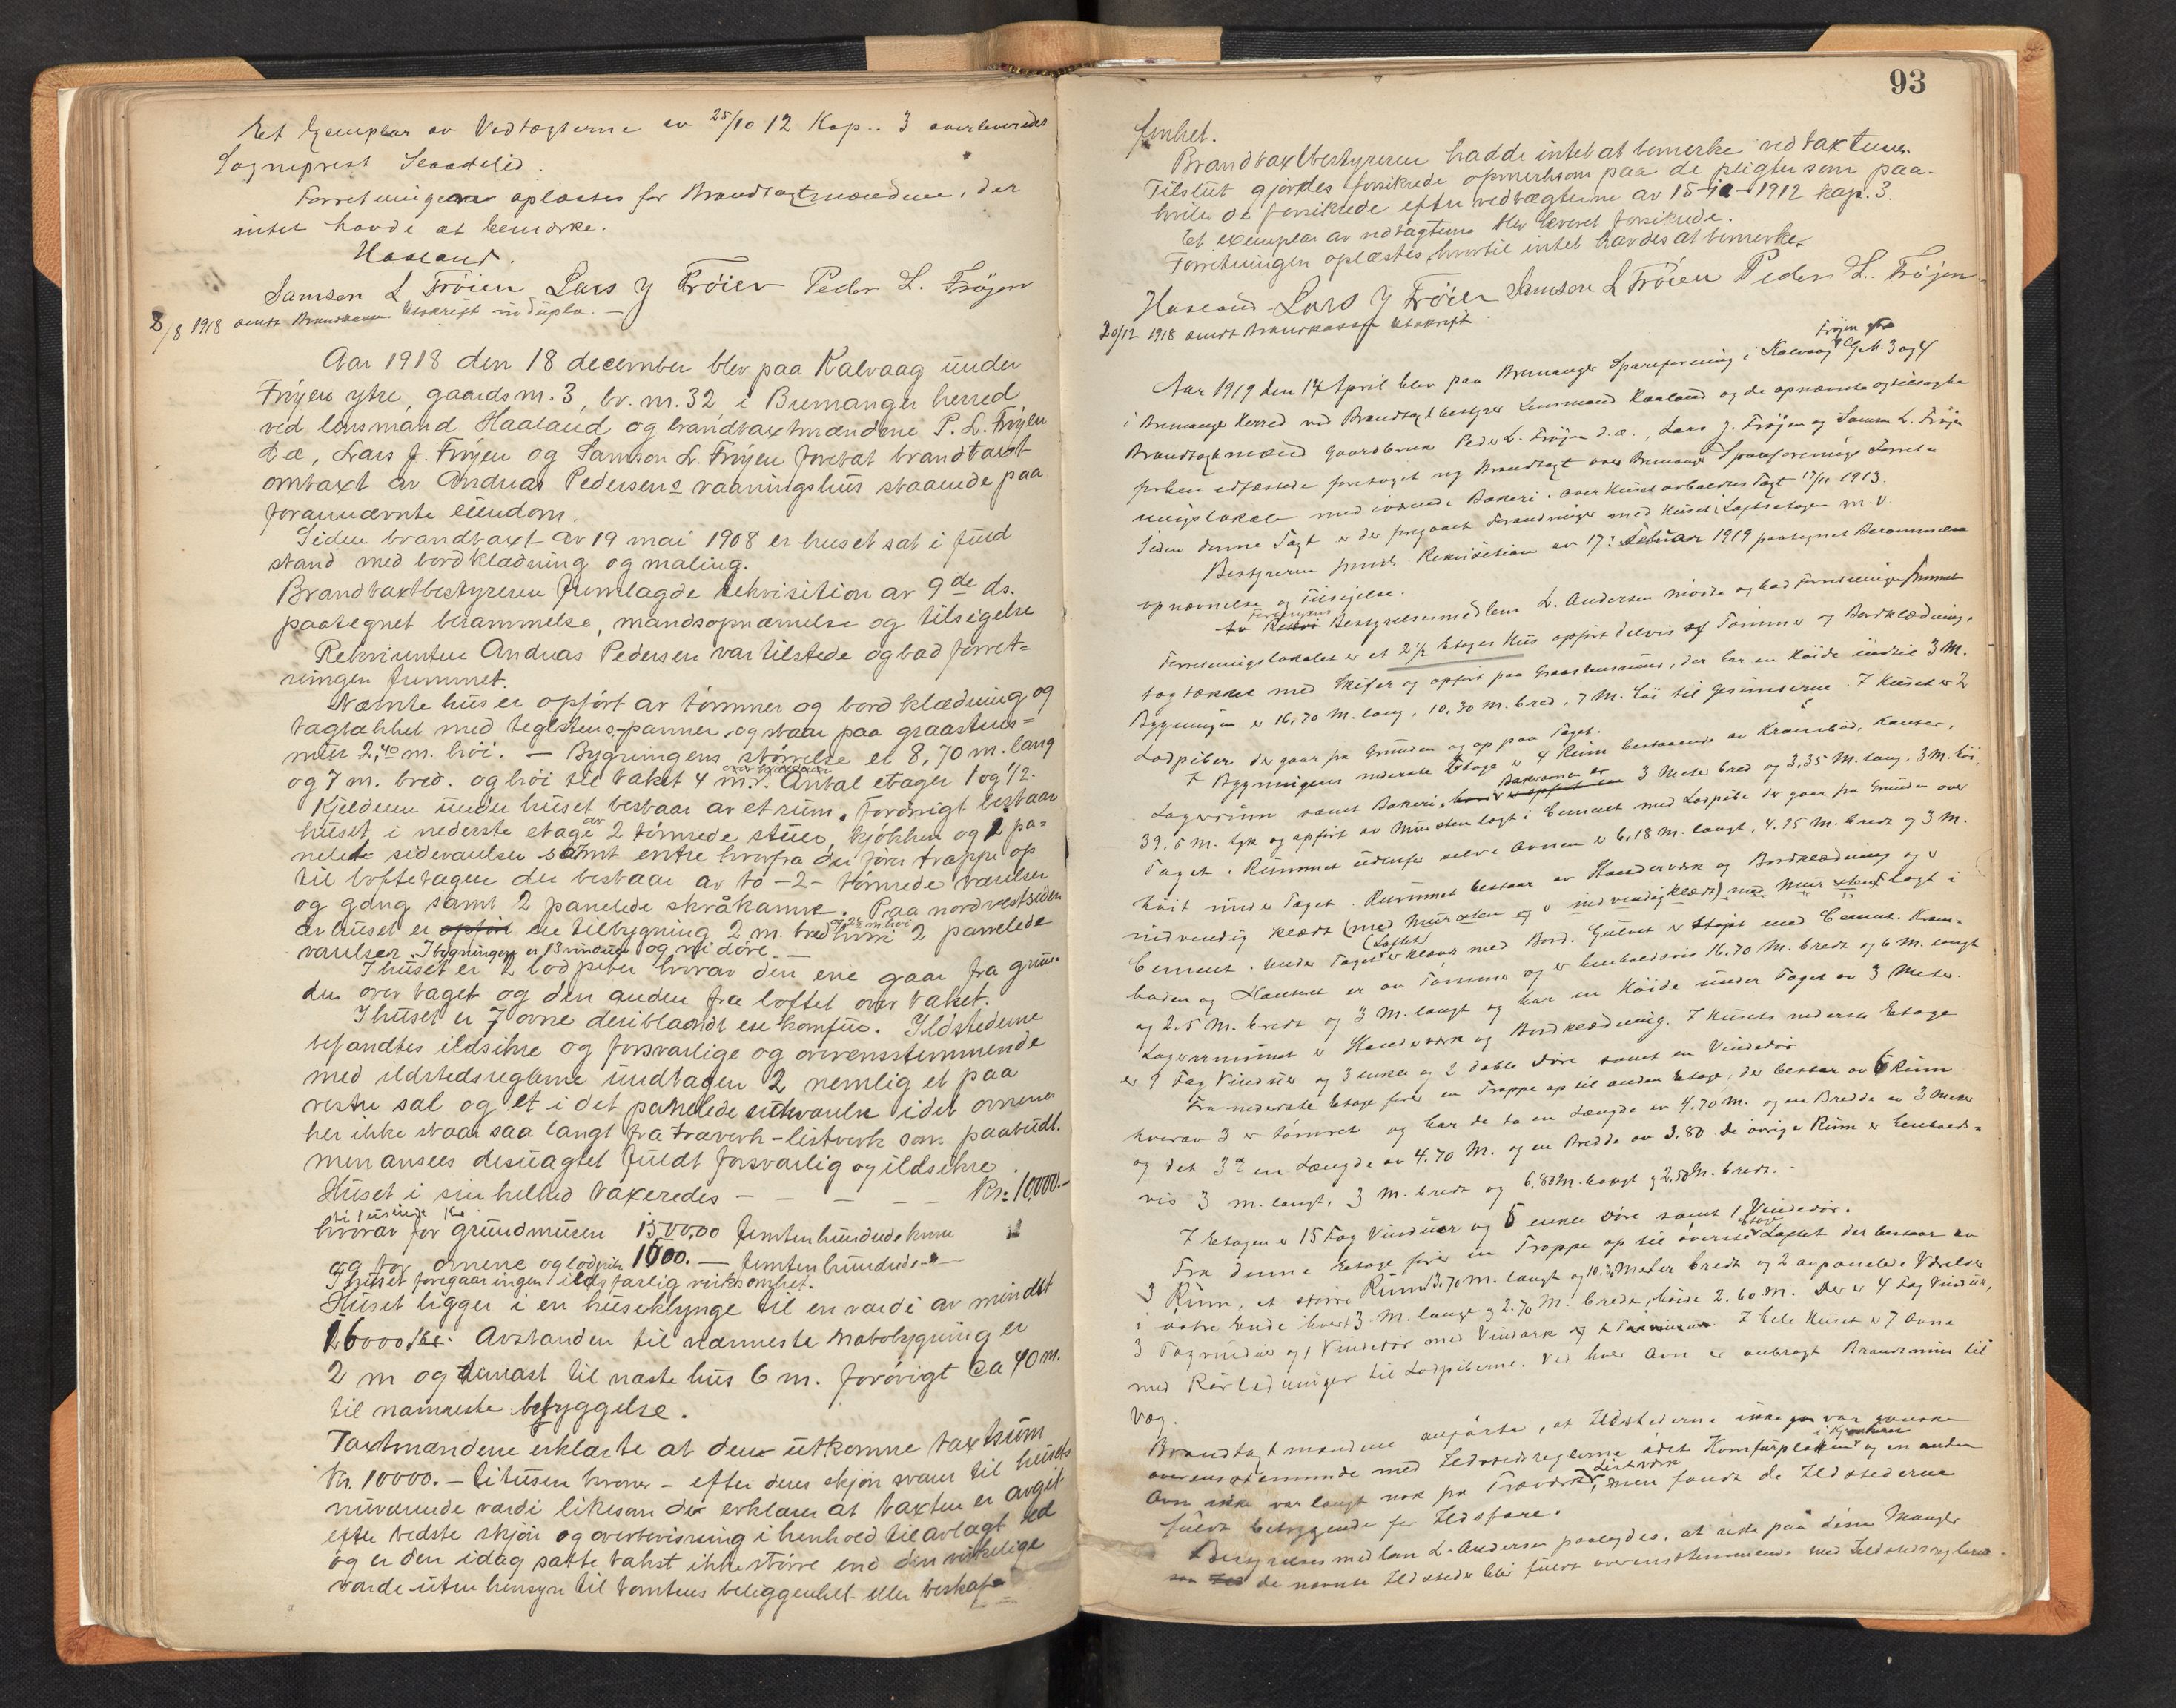 Et Exemplar av Vedtægterne av 25/10 12 Kap. 3 overleveredes
Sogneprest
Forretningen oplæstes for Brandtagtmændene, der
intet havde at bemærke.
Haaland.
Samson L Frøien Lars J Frøien Peder L. Frøyen
8/8 1918 sendt Brandkassen Utskrift in duplo. —
Aar 1918 den 18 december blev paa Kalvaag under
Frøyen ytre, gaardsnr. 3, br. nr. 32 i Bremanger herred,
ved lensmand Haaland og brandtaxtmændene P. L. Frøyen
d.æ, Lars J. Frøyen og Samson L. Frøyen foretat brandtaxt-
omtaxt av Andreas Pedersens vaaningshus staaende paa
forannævnte eiendom.
Siden brandtaxt av 19 mai 1908 er huset sat i fuld
stand med bordklædning og maling.
Brandtaxtbestyreren fremlagde rekvisition av 9de ds.
paategnet berammelse, mandsopnævnelse og tilsigelse
Rekvirenten Andreas Pedersen var tilstede og bad forret-
ningen fremmet.
Nævnte hus er opført av tømmer og bordklædning og
tagtækket med teglstens-panner, og staar paa graastens-
mur 2,40 m. høi. — Bygningens størrelse er 8,70 m. lang
og 7 m. bred. og høi til taket 4 m. over grundmur. Antal etager 1 og 1/2.
Kjelderen under huset bestaar av et rum. Forøvrigt bestaar
huset i nederste etage av 2 tømrede stuer, kjøkken og 2 pa-
nelede sideværelser samt entre hvorfra der fører trappe op
til loftetagen der bestaar av to -2- tømrede værelser
og gang samt 2 panelede skråkamre. Paa nordvestsiden
av huset er opført en tilbygning 2 m. bred og 2½ m høi hvori 2 panelede
værelser. I bygningen er 13 vinduer og ni døre. —
I huset er 2 lodpiber hvorav den ene gaar fra grun-
den over taget og den anden fra loftet over taket.
I huset er 7 ovne deriblandt en komfur. Ildstederne
befandtes ildsikre og forsvarlige og overensstemmende
med ildstedsreglerne undtagen 2 nemlig et paa
vestre sal og et i det panelede sideværelse idet ovnene
her ikke staar saa langt fra træverk-listverk som paabudt.
men ansees desuagtet fuldt forsvarlig og ildsikre.
Huset i sin helhed taxeredes — — — — — Kr. 10,000.—
ti tusinde Kr.
hvorav for grundmuren 1500,00 femtenhundrede kroner
og for ovnene og lodpiber 1500. — femtenhundrede — " —
I huset foregaar ingen ildsfarlig virksomhet.
Huset ligger i en huseklynge til en værdi av mindst
16000 kr. Avstanden til nærmeste nabobygning er
2 m og dernæst til næste hus 6 m. forøvrigt ca 40 m.
til nærmeste bebyggelse.
Taxtmændene erklærte at den utkomne taxtsum
Kr. 10000. — titusen kroner — efter deres skjøn svarer til husets
nuværende værdi likesom de erklærer at taxten er avgit
efter bedste skjøn og overbevisning i henhold til avlagt ed
og er den idag satte takst ikke større end den virkelige
værdi uten hensyn til tomtens beliggenhet eller beskaf-
93
fenhet.
Brandtaxtbestyreren hadde intet at bemerke ved taksten.
Tilslut gjordes forsikrede opmerksom paa de pligter som paa-
hviler de forsikrede efter vedtægterne av 15-10-1912 kap. 3.
Et exemplar av vedtægterne blev leveret forsikrede.
Forretningen oplæstes, hvortil intet havdes at bemerke.
Haaland Lars J Frøien Samson L Frøien Peder L. Frøjen
20/12 1918 sendt Brandkassen Utskrift.
Aar 1919 den 14 April blev paa Bremanger Spareforening i Kalvaag Frøjen ytre G.Nr. 3 og 4
i Bremanger Herred ved Brandtagtbestyrer Lensmand Haaland og de opnævnte og tilsagte
Brandtagtmænd Gaardbruker Peder L. Frøjen d.æ., Lars J. Frøjen og Samson L. Frøjen
forhen edfæstede foretaget ny Brandtagt over Bremanger Spareforenings Forret-
ningslokale med iværende Bakeri. Over Huset avholdtes Tagt 17/11 1913.
Siden denne Tagt er der foregaaet Forandringer med Huset i Loftsetagen m. v.
Bestyreren fremla Rekvisition av 17: Februar 1919 paategnet Berammelse
opnævnelse og Tilsigelse.
Foreningens Bestyrelsesmedlem L. Andersen mødte og bad Forretningen fremmet
Forretningslokalet er et 2½ Etages Hus opført delvis af Tømmer og Bordklædning,
tagtækket med Skifer og opført paa Graastensmur, der har en Høide indtil 3 M.
Bygningen er 16.70 M. lang, 10.30 M. bred, 7 M. høi til Gesimserne. I Huset er 2
Lodpiber der gaar fra Grunden og op paa Taget.
I Bygningens nederste Etage er 4 Rum bestaaende av Krambod, Kontor,
Lagerrum samt Bakeri, Bakerovnen er 3 Meter bred og 3,35 M. lang, 3 M. høi,
39.5 M. tyk og opført av Mursten lagt i Cement med Lodpibe der gaar fra Grunden over
Taget. Rummet utenfor selve ovnen er 6,18 M. langt, 4.95 M. bredt og 3 M.
høit under Taget. Rummet bestaar av Standerverk og Bordklædning og er
indvendig klædt (med Mursten og er indvendig klædt) med Mursten lagt i
Cement. Under Taget (Loftet) er klædt med Bord. Gulvet er støpt med Cement. Kram-
boden og Kontoret er av Tømmer og er henholdsvis 16.70 M. bredt og 6 M. langt
og 2.5 M. bredt og 3 M. langt og har en Høide under Taget av 3 Meter.
Lagerrummet er Standerverk og Bordklædning. I Husets nederste Etage
er 9 Fag Vinduer og 3 enkle og 2 doble Døre samt en Vindedør
Fra nederste Etage fører en Trappe op til anden Etage, der bestaar av 6 Rum
hvorav 3 er tømret og har de to en Længde av 4.70 M. og en Bredde av 3 Meter
og det 3die en Længde av 4.70 M. og en Bredde av 3.80 De øvrige Rum er henholds-
vis 3 m. langt, 3 M. bredt og 6.80 M. langt og 2.50 M. bredt. —
I Etagen er 15 Fag Vinduer og 5 enkle Døre samt 1 Vindedør.
Fra denne Etage fører en Trappe op til øverste Etage Loftet der bestaar av
3 Rum, et større Rum 13.70 M. langt og 10.30 Meter bredt og 2 avpanelede Værelser
i østre Ende hvert 3 M. lange og 2.70 M. brede, høide 2.60 M. Der er 4 Fag Vinduer,
3 Tagvinduer og 1 Vindedør med Vindark. I hele Huset er 7 Ovne
med Rørledninger til Lodpiberne. Ved hver Ovn er anbragt Brandmur til
Væg.
Brandtagtmændene anførte, at Ildstederne ikke var ganske
overensstemmende med Ildstedsreglerne idet Komfurpladen i Kjøkkenet og en anden
Ovn ikke var langt nok fra Træverk Listverk, men fandt de Ildstederne
fuldt betryggende for Ildsfare.
Bestyrelsesmedlem L. Andersen paalagdes, at rette paa disse Mangler
saa de nævnte Ildsteder blir fuldt overensstemmende med Ildstedsreglerne.